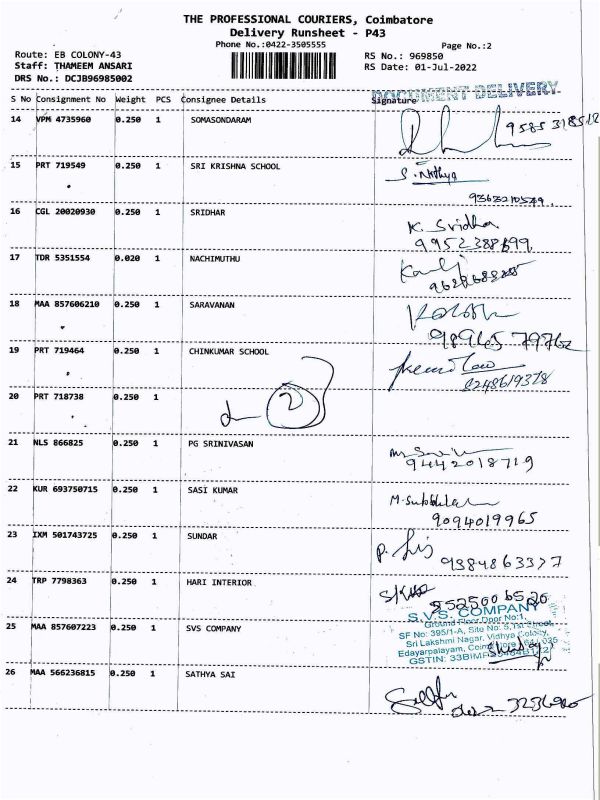 THE PROFESSIONAL COURIERS, Coimbatore
Delivery Runsheet - P43
Phone No.:0422-3505555
Page No.:2
Route: EB COLONY-43
RS No.: 969850
Staff: THAMEEM ANSARI
RS Date: 01-Jul-2022
DRS No.: DCJB96985002
DOCUMENT DELIVERY
S No Consignment No Weight PCS Consignee Details Signature
14 VPM 4735960 0.250 1 SOMASONDARAM
15 PRT 719549 0.250 1 SRI KRISHNA SCHOOL S. Nithya
16 CGL 20020930 0.250 1 SRIDHAR K. Sridha
9952388699
17 TDR 5351554 0.020 1 NACHIMUTHU
18 MAA 857606210 0.250 1 SARAVANAN
98965 79762
19 PRT 719464 0.250 1 CHINKUMAR SCHOOL
20 PRT 718738 0.250 1 2
21 NLS 866825 0.250 1 PG SRINIVASAN
9442018719
22 KUR 693750715 0.250 1 SASI KUMAR
9094019965
23 IXM 501743725 0.250 1 SUNDAR
9384863377
24 TRP 7798363 0.250 1 HARI INTERIOR
S.V.S. COMPANY
Ground Floor Door No:1,
SF No: 395/1-A, Site No: 5, 1st Street,
25 MAA 857607223 0.250 1 SVS COMPANY Sri Lakshmi Nagar, Vidhya Colony,
Edayarpalayam,
GSTIN:
26 MAA 566236815 0.250 1 SATHYA SAI